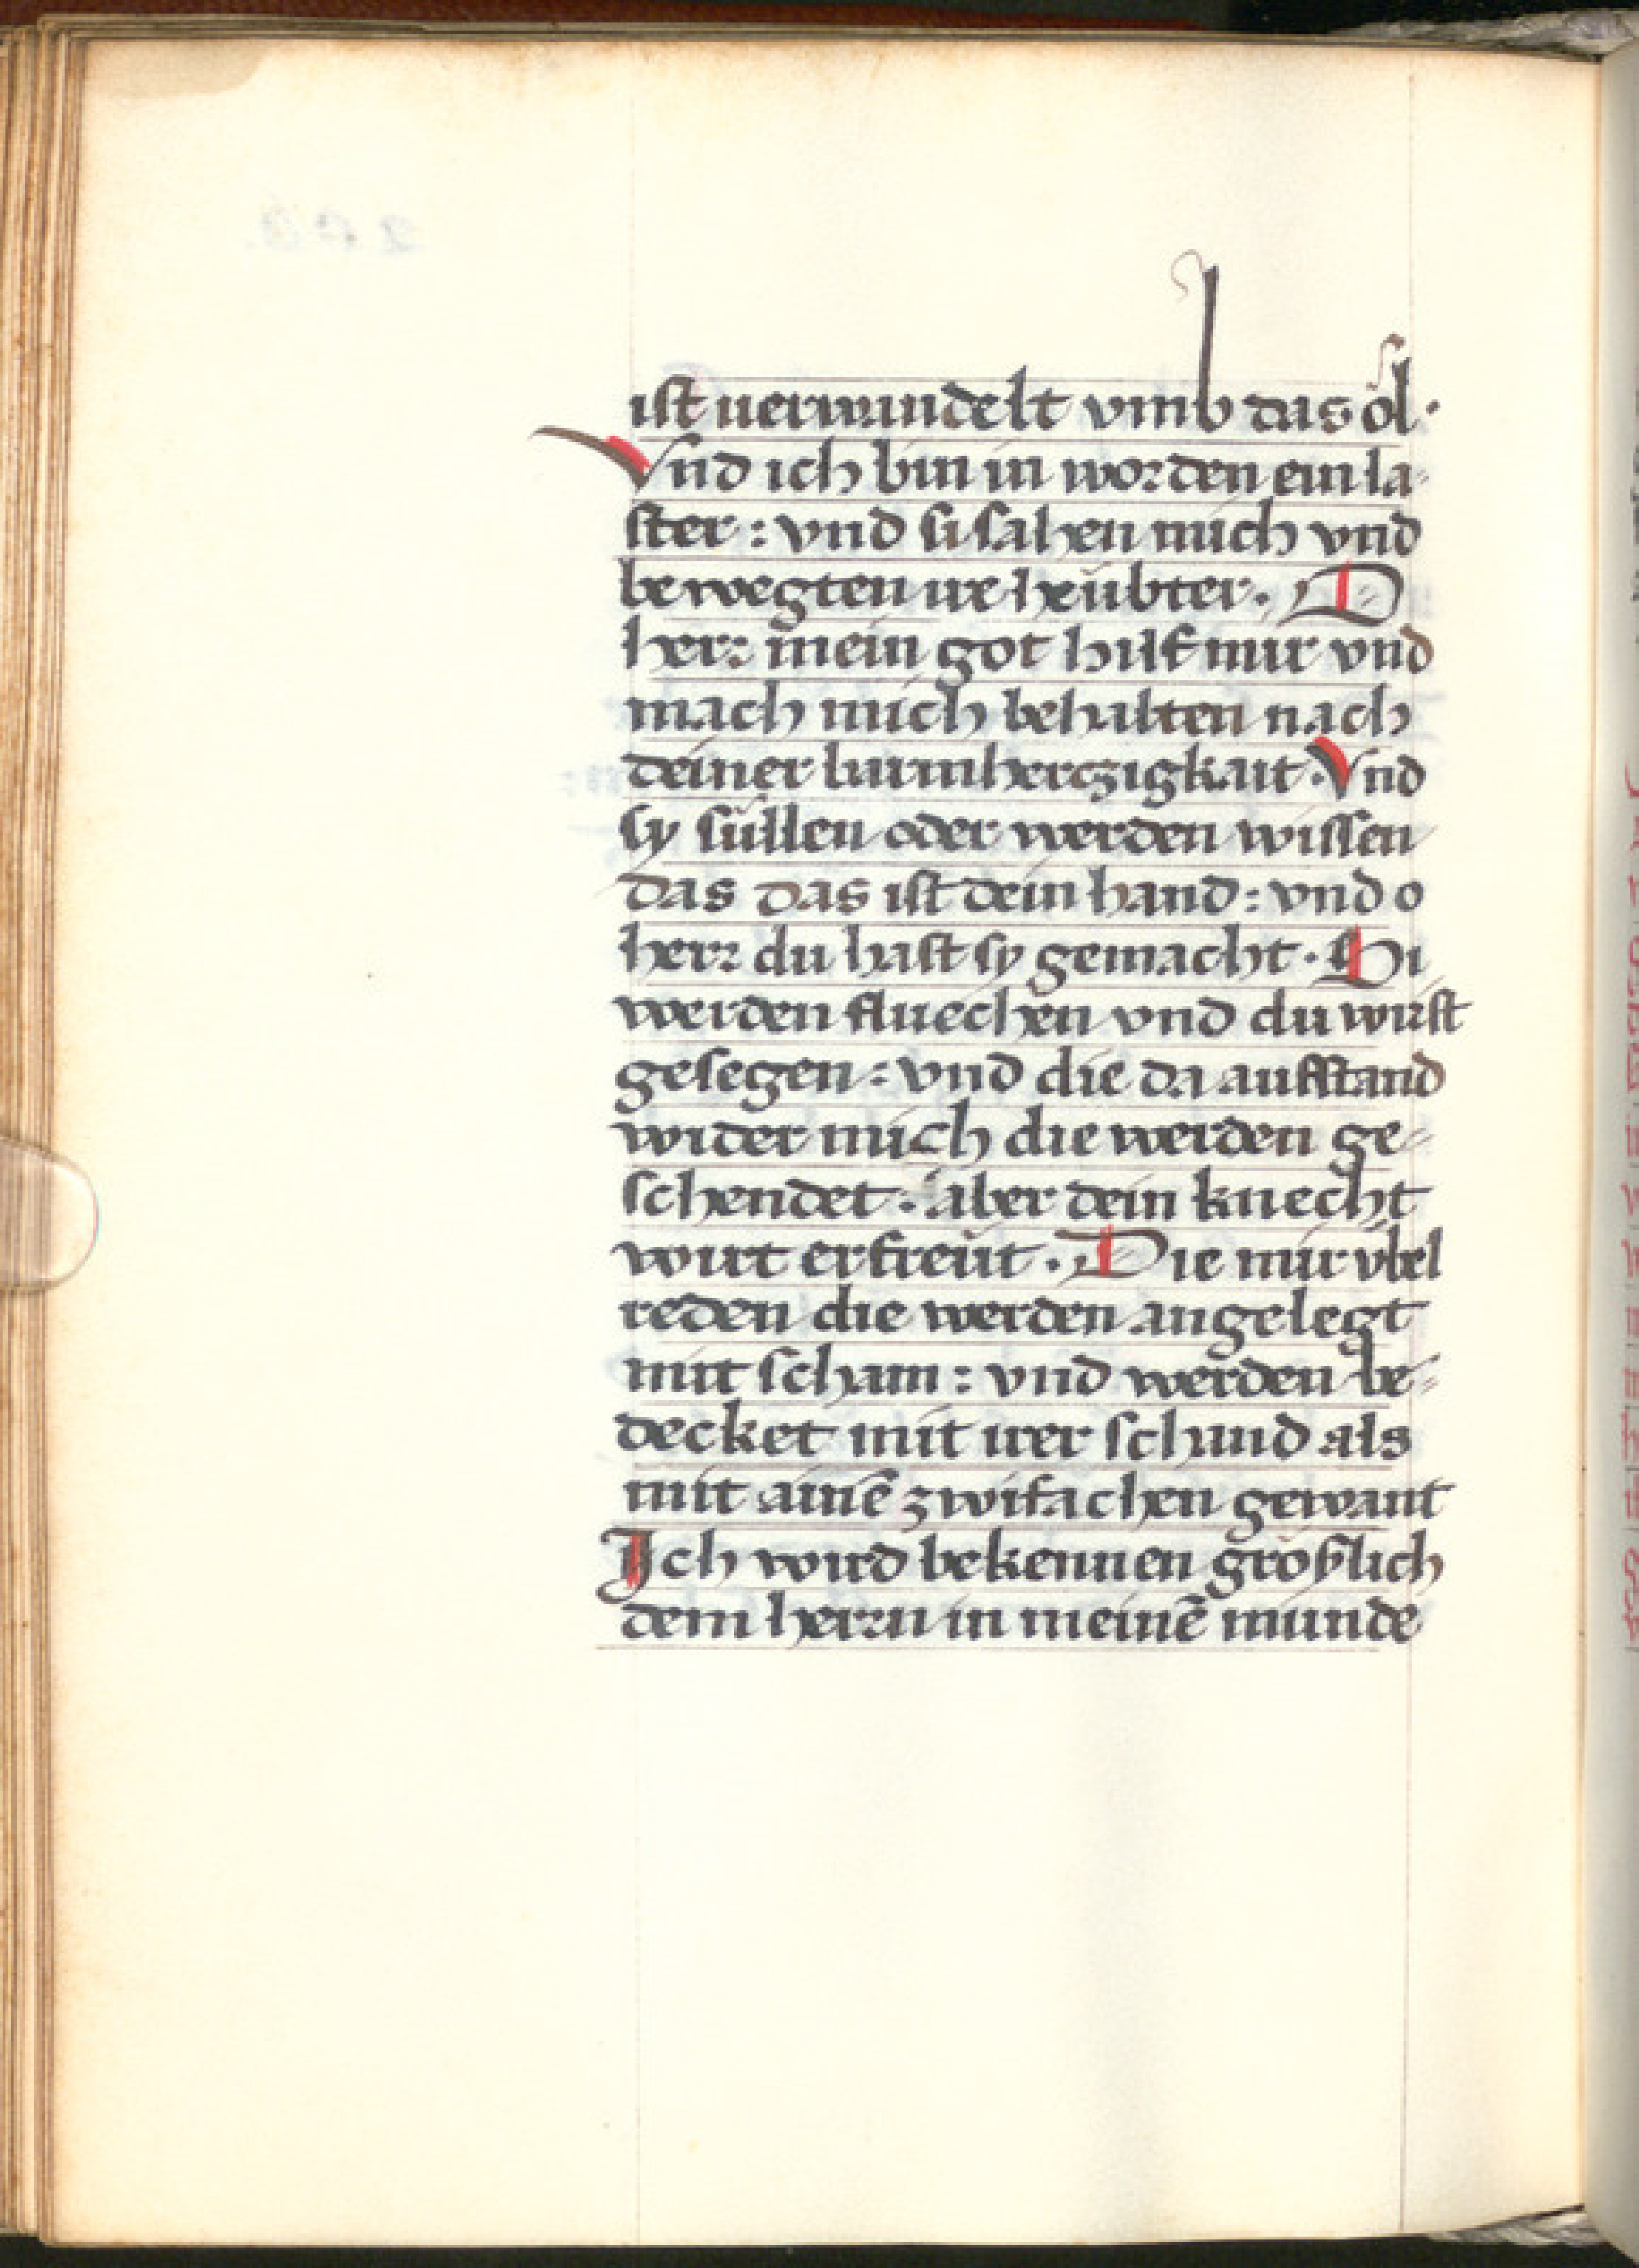 ist uerwundelt vmb das ól·
Vnd ich bin in worden ein la-
ster: vnd si sahen mich vnd
bewegten ire heubter. O
herr mein got hilf mir vnd
mach mich behalten nach
deiner barmhertzigkait. Vnd
sy süllen oder werden wissen
das das ist dein hand: vnd o
herr du hast sy gemacht. Si
werden fluechen vnd du wirst
gesegen: vnd die da aufstand
wider mich die werden ge-
schendet. aber dein knecht
wirt erfreüt. Die mir vbel
reden die werden angelegt
mit scham: vnd werden be-
decket mit irer schand als
mit ainē zwifachen gewant
Ich wird bekennen gröslich
dem herrn in meinē munde